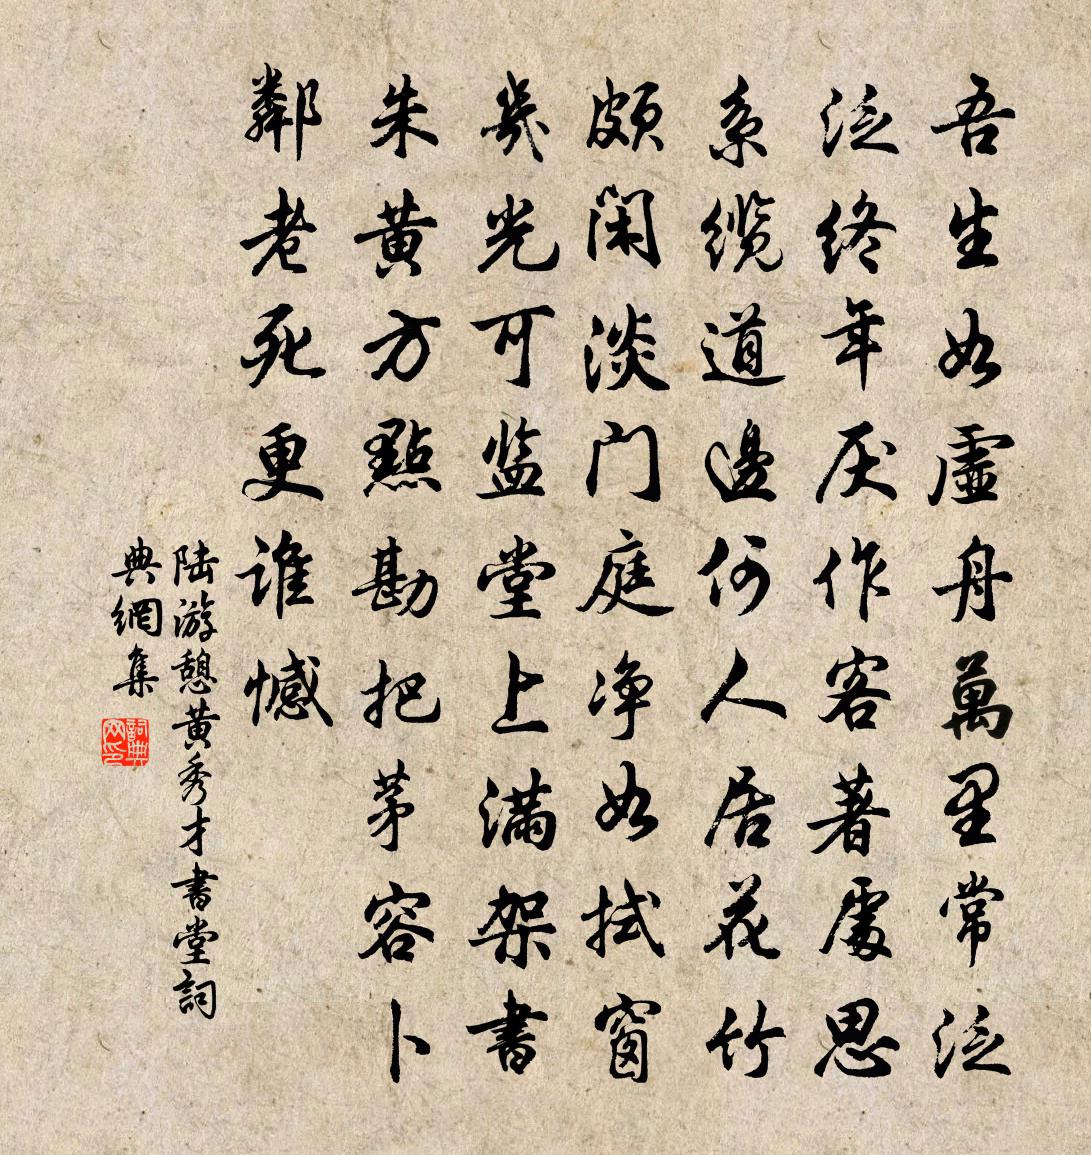 吾生如虛舟萬里常泛
泛终年厌作客著處思
系缆道邊何人居花竹
颇闲淡门庭净如拭窗
几光可监堂上满架書
朱黄方點勘把茅容卜
鄰老死更谁憾
陆游憩黄秀才書堂詞
典網集
詞典
网印